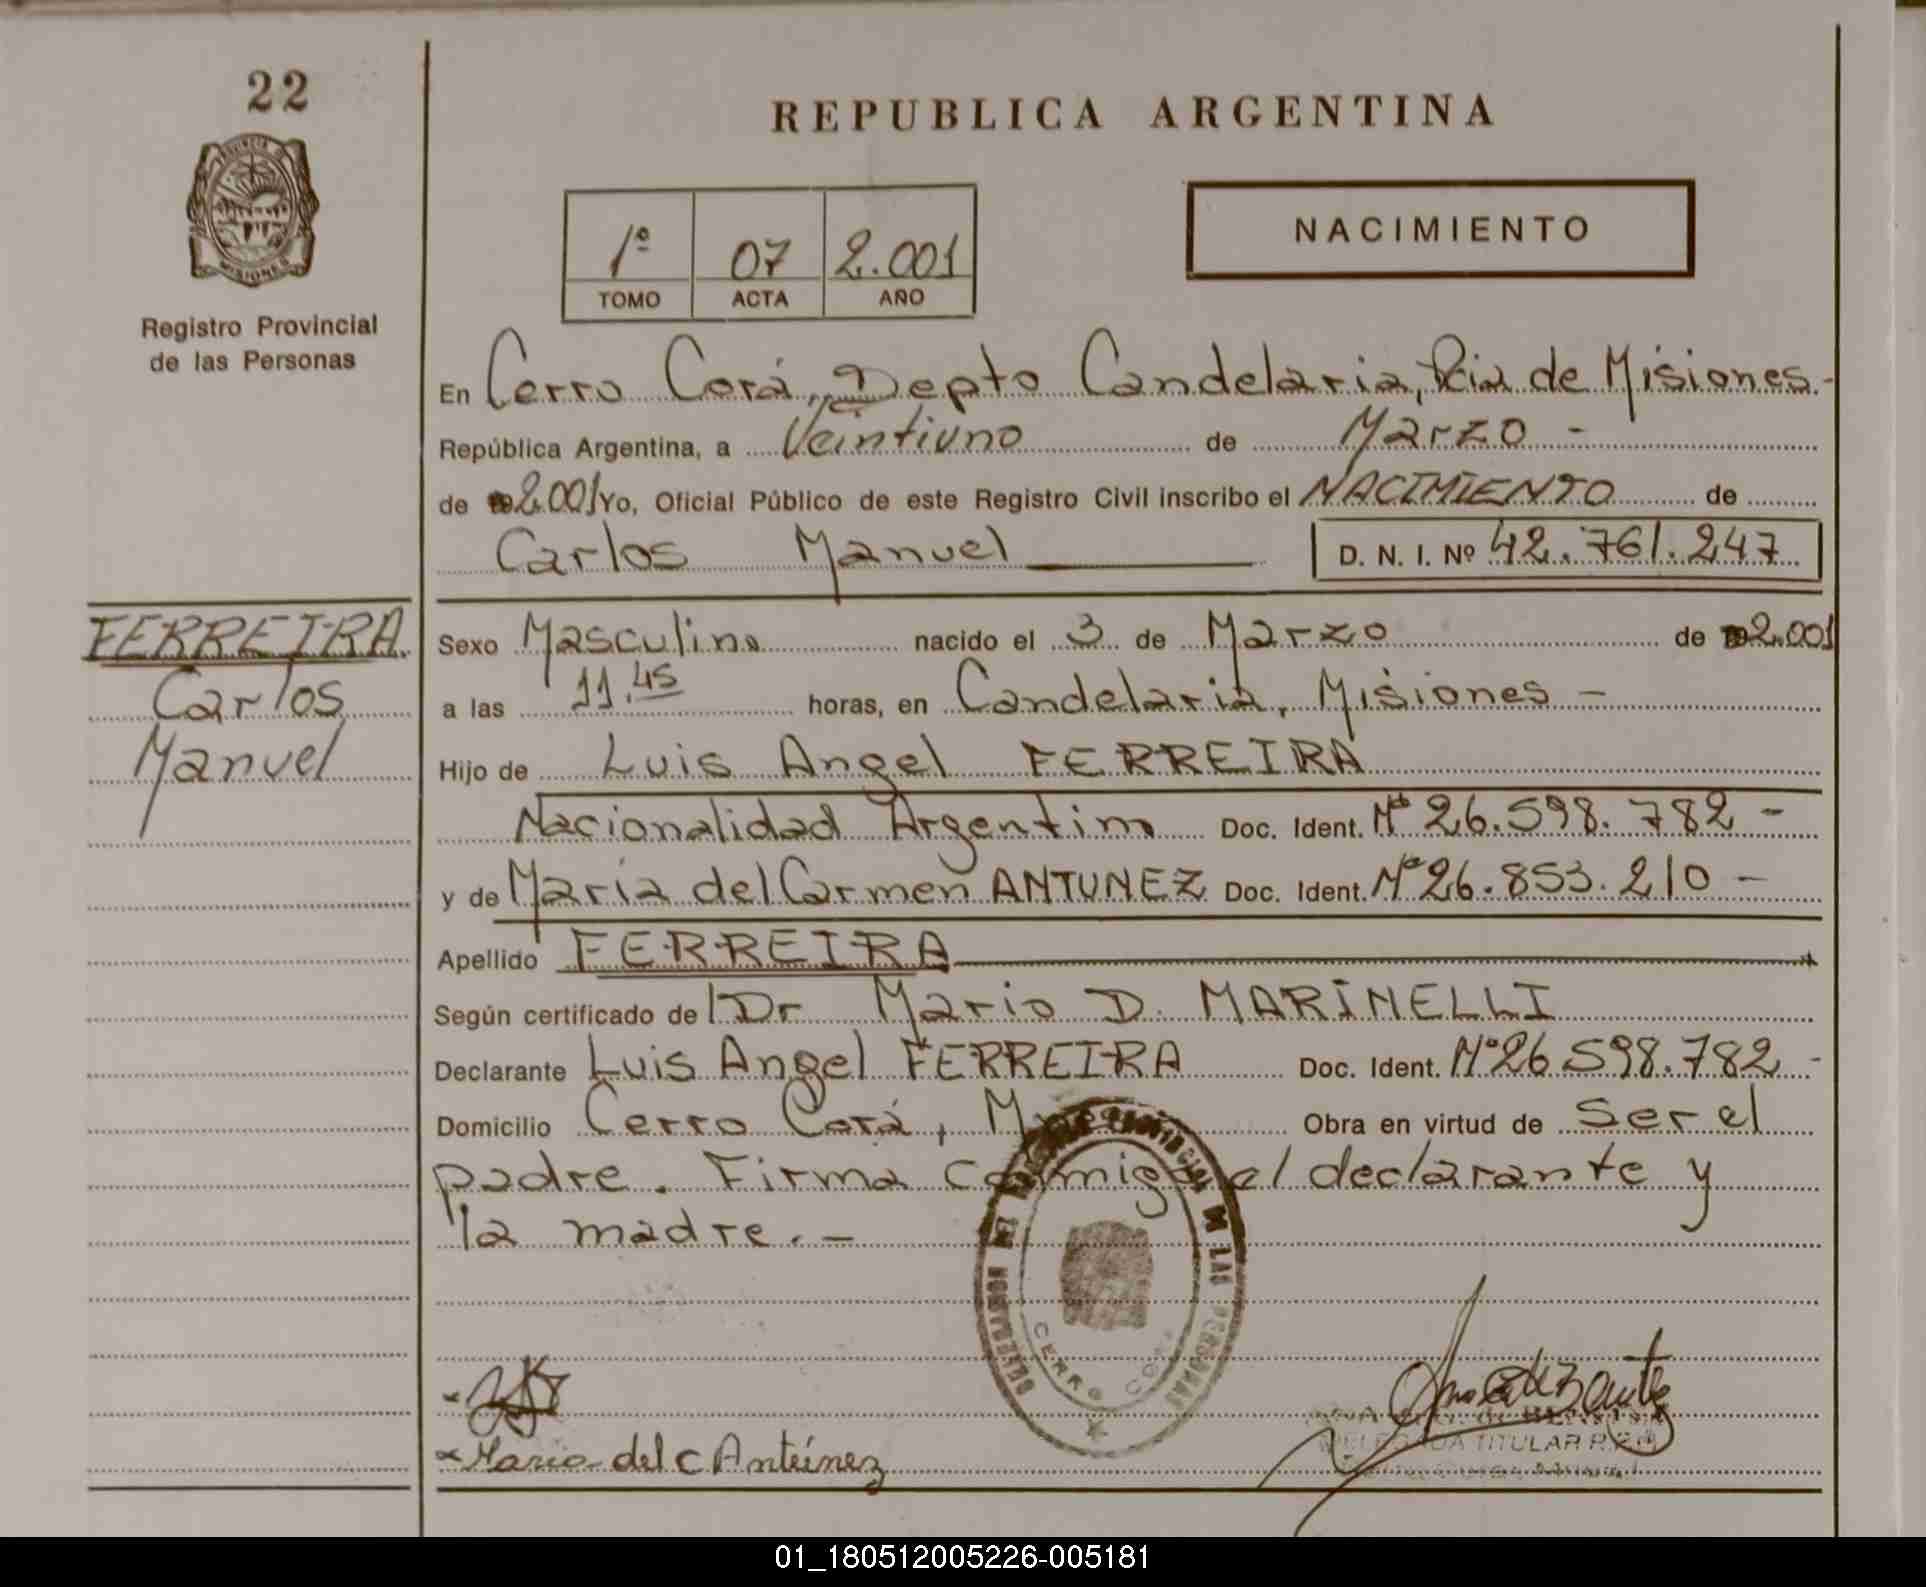 22
REPUBLICA ARGENTINA
PROVINCIA DE
MISIONES
Registro Provincial
de las Personas
1º 07 2.001
TOMO ACTA AÑO
NACIMIENTO
En Cerro Corá, Depto Candelaria, Pcia de Misiones.-
República Argentina, a Veintiuno de Marzo -
de 2.001 Yo, Oficial Público de este Registro Civil inscribo el NACIMIENTO de
Carlos Manuel D. N. I. Nº 42.761.247
FERREIRA
Carlos
Manuel
Sexo Masculino nacido el 3 de Marzo de 2.001
a las 11.45 horas, en Candelaria, Misiones -
Hijo de Luis Angel FERREIRA
Nacionalidad Argentino Doc. Ident. Nº 26.598.782 -
y de María del Carmen ANTUNEZ Doc. Ident. Nº 26.853.210 -
Apellido FERREIRA
Según certificado de Dr Mario D. MARINELLI
Declarante Luis Angel FERREIRA Doc. Ident. Nº 26 598.782 -
Domicilio Cerro Corá, Obra en virtud de ser el
padre. Firma conmigo el declarante y
la madre. -
DE LAS PERSONAS
CERRO CORA
Maria del C Antúnez
DELEGADA TITULAR R.P.P.
01_180512005226-005181